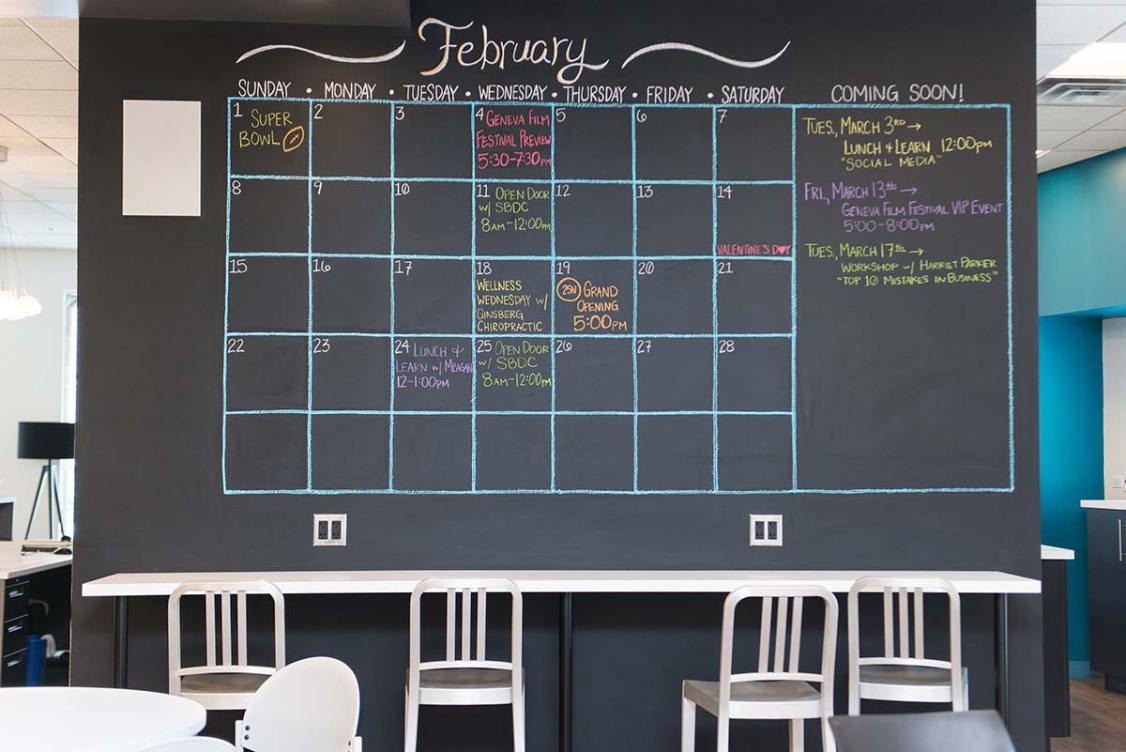 February
SUNDAY • MONDAY • TUESDAY • WEDNESDAY • THURSDAY • FRIDAY • SATURDAY
COMING SOON!
1
SUPER
BOWL
2
3
4 GENEVA FILM
FESTIVAL PREVIEW
5:30-7:30PM
5
6
7
8
9
10
11 OPEN DOOR
w/ SBDC
8AM-12:00PM
12
13
14
VALENTINE'S D♥Y
15
16
17
18
WELLNESS
WEDNESDAY w/
GINSBERG
CHIROPRACTIC
19
25N GRAND
OPENING
5:00PM
20
21
22
23
24 LUNCH &
LEARN w/ MEAGAN
12-1:00PM
25 OPEN DOOR
w/ SBDC
8AM-12:00PM
26
27
28
TUES, MARCH 3RD →
LUNCH & LEARN 12:00pm
"SOCIAL MEDIA"
FRI, MARCH 13th →
GENEVA FILM FESTIVAL VIP EVENT
5:00-8:00PM
TUES, MARCH 17th →
WORKSHOP w/ HARRIET PARKER
"TOP 10 MISTAKES IN BUSINESS"